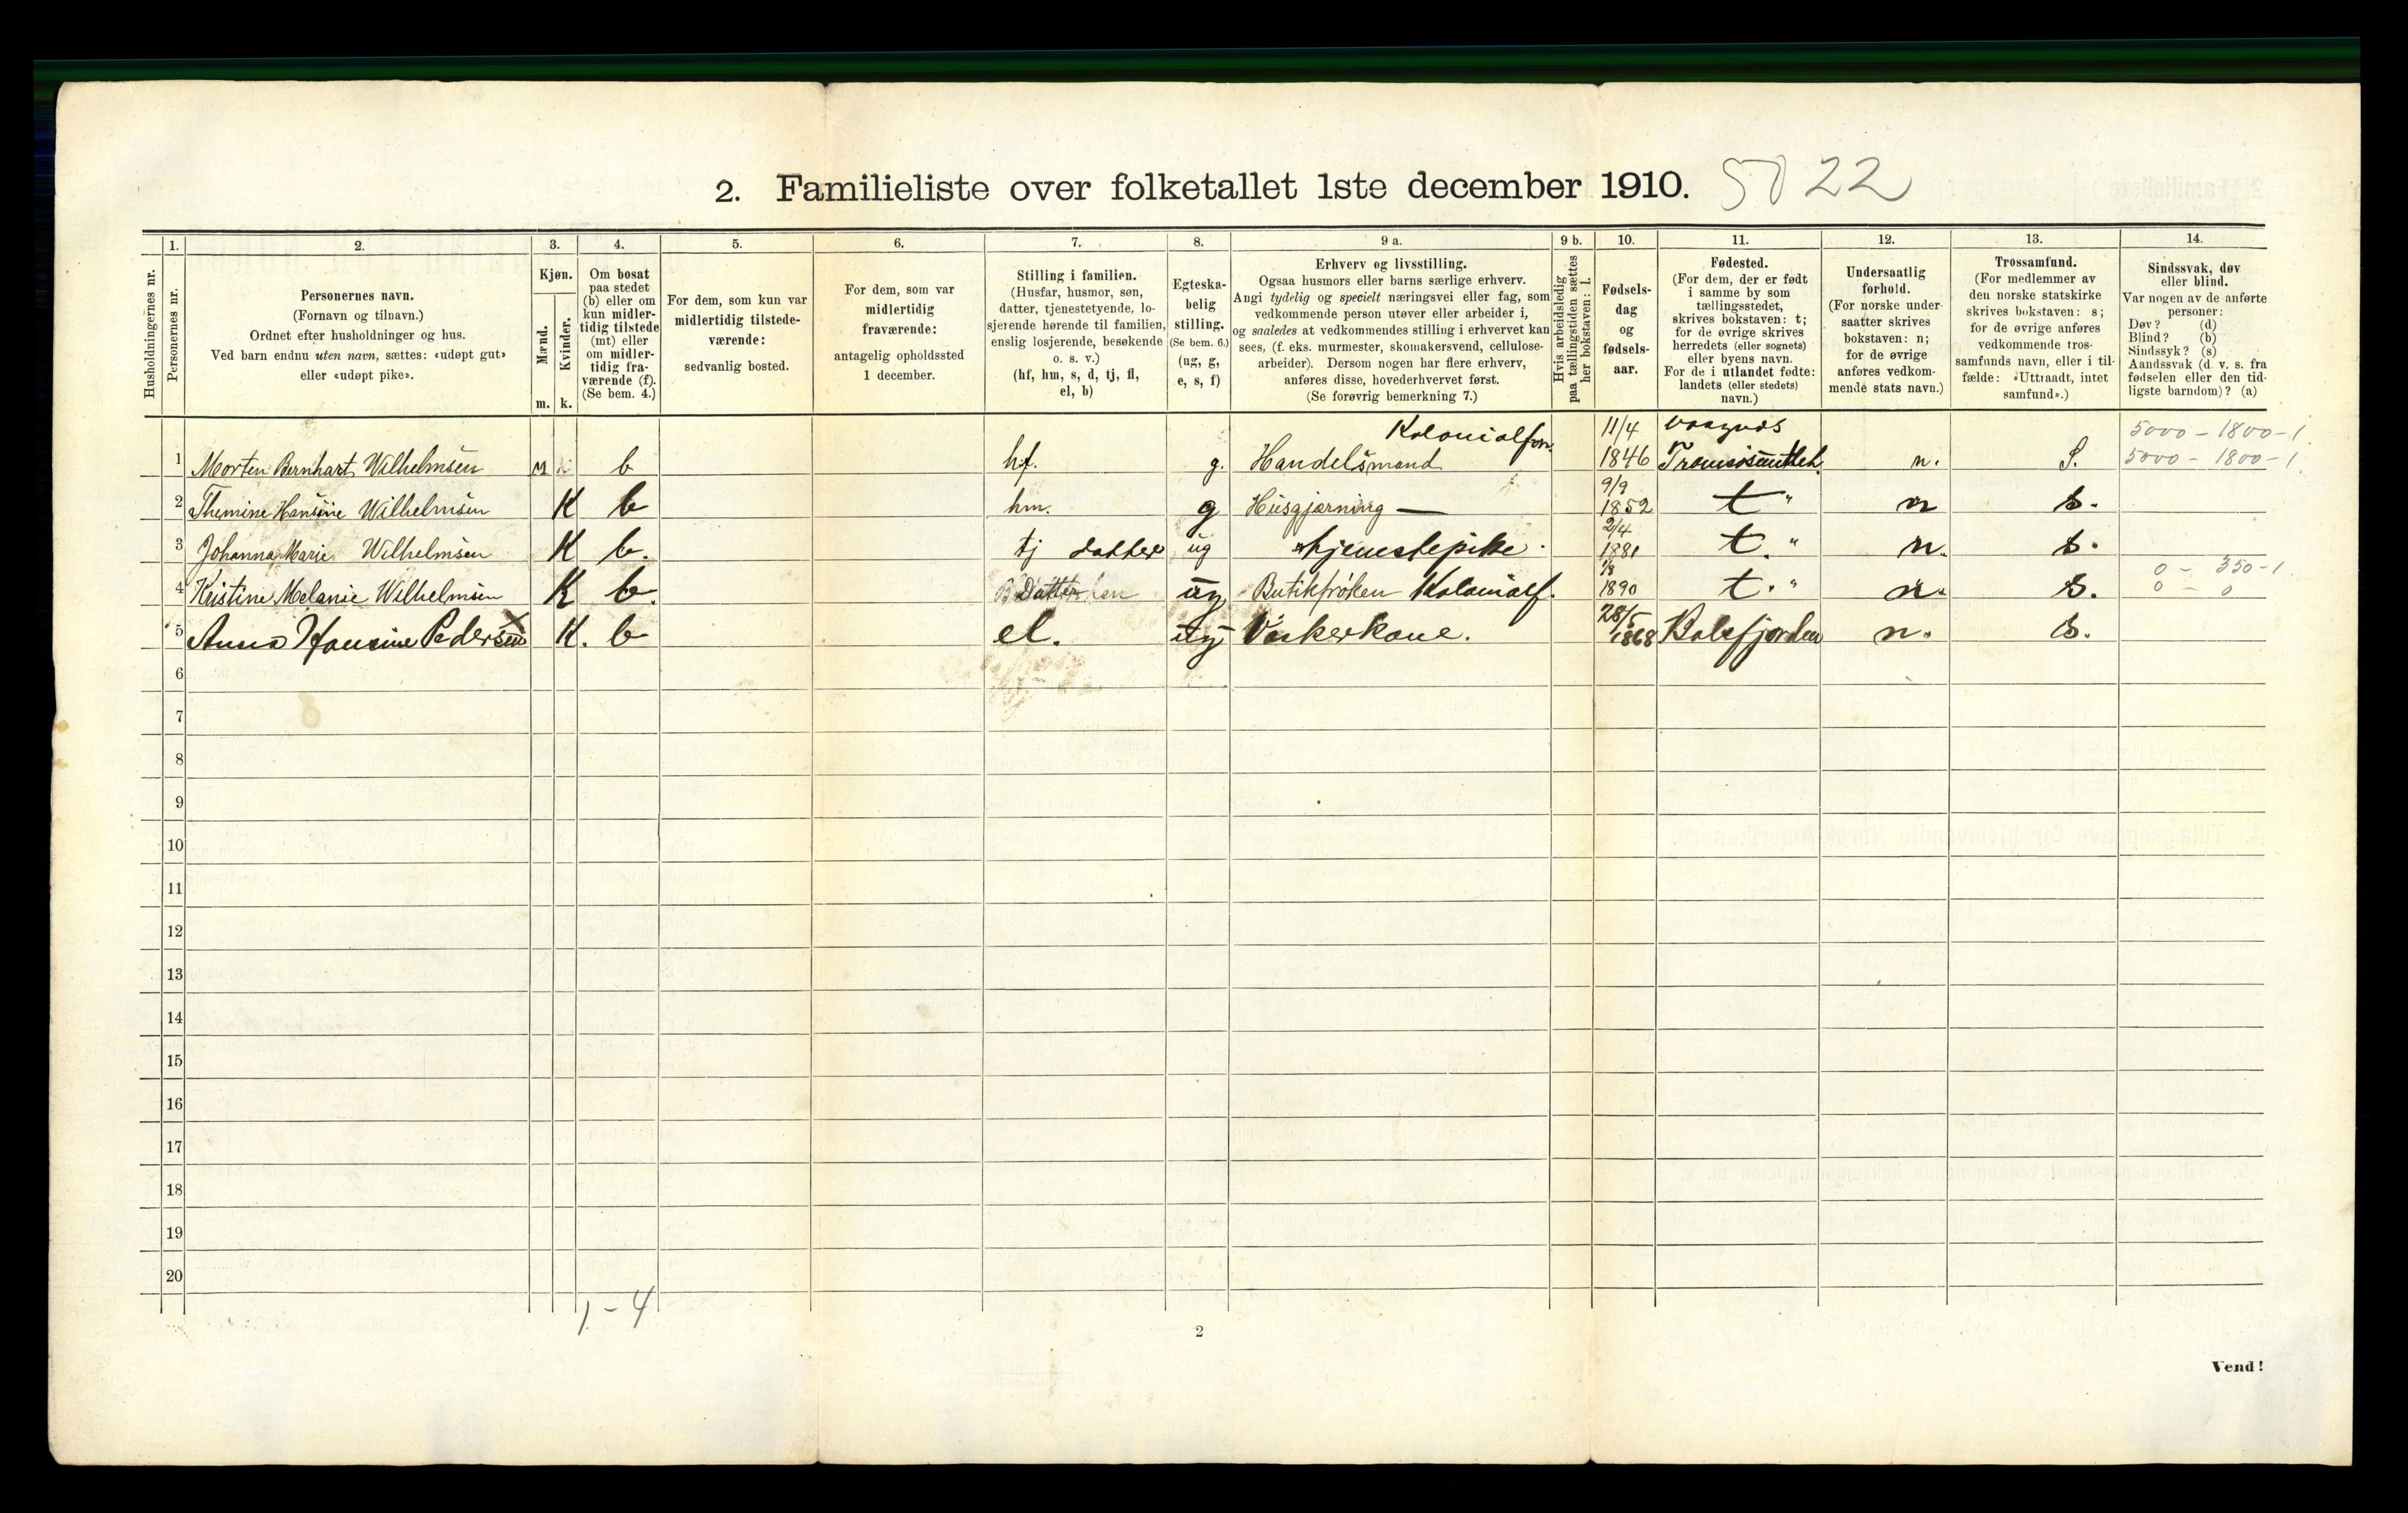 2. Familieliste over folketallet 1ste december 1910. 5022
1. 2. 3. 4. 5. 6. 7. 8. 9 a. 9 b. 10. 11. 12. 13. 14.
Husholdningernes nr.
Personernes nr.
Personernes navn.
(Fornavn og tilnavn.)
Ordnet efter husholdninger og hus.
Ved barn endnu uten navn, sættes: «udøpt gut»
eller «udøpt pike».
Kjøn.
Mænd.
Kvinder.
m. k.
Om bosat
paa stedet
(b) eller om
kun midler-
tidig tilstede
(mt) eller
om midler-
tidig fra-
værende (f).
(Se bem. 4.)
For dem, som kun var
midlertidig tilstede-
værende:
sedvanlig bosted.
For dem, som var
midlertidig
fraværende:
antagelig opholdssted
1 december.
Stilling i familien.
(Husfar, husmor, søn,
datter, tjenestetyende, lo-
sjerende hørende til familien,
enslig losjerende, besøkende
o. s. v.)
(hf, hm, s, d, tj, fl,
el, b)
Egteska-
belig
stilling.
(Se bem. 6.)
(ug, g,
e, s, f)
Erhverv og livsstilling.
Ogsaa husmors eller barns særlige erhverv.
Angi tydelig og specielt næringsvei eller fag, som
vedkommende person utøver eller arbeider i,
og saaledes at vedkommendes stilling i erhvervet kan
sees, (f. eks. murmester, skomakersvend, cellulose-
arbeider). Dersom nogen har flere erhverv,
anføres disse, hovederhvervet først.
(Se forøvrig bemerkning 7.)
Hvis arbeidsledig
paa tællingstiden sættes
her bokstaven: l.
Fødsels-
dag
og
fødsels-
aar.
Fødested.
(For dem, der er født
i samme by som
tællingsstedet,
skrives bokstaven: t;
for de øvrige skrives
herredets (eller sognets)
eller byens navn.
For de i utlandet fødte:
landets (eller stedets)
navn.)
Undersaatlig
forhold.
(For norske under-
saatter skrives
bokstaven: n;
for de øvrige
anføres vedkom-
mende stats navn.)
Trossamfund.
(For medlemmer av
den norske statskirke
skrives bokstaven: s;
for de øvrige anføres
vedkommende tros-
samfunds navn, eller i til-
fælde: «Uttraadt, intet
samfund».)
Sindssvak, døv
eller blind.
Var nogen av de anførte
personer:
Døv? (d)
Blind? (b)
Sindssyk? (s)
Aandssvak (d. v. s. fra
fødselen eller den tid-
ligste barndom)? (a)
Kolonialfor. 11/4 5000 - 1800 - 1.
1 Morten Bernhart Wilhelmsen M b hf. g. Handelsmand 1846 Tromsøsundet n. S. 5000 - 1800 - 1.
9/9
2 Themine Hansine Wilhelmsen K b hm. g Husgjærning — 1852 t " n s.
2/4
3 Johanna Marie Wilhelmsen K b. tj datter ug tjenestepike. 1881 t. " n. s.
1/8 0 - 350 - 1
4 Kristine Melanie Wilhelmsen K b. Datter ug Butikfrøken Kolonialf. 1890 t. " n. s. 0 - 0
28/5
5 Anna Hansine Pedersen X K. b el. ug Vaskerkone. 1868 Balsfjorden n. s.
6
7
8
9
10
11
12
13
14
15
16
17
18
19
20
1 - 4
2
Vend!